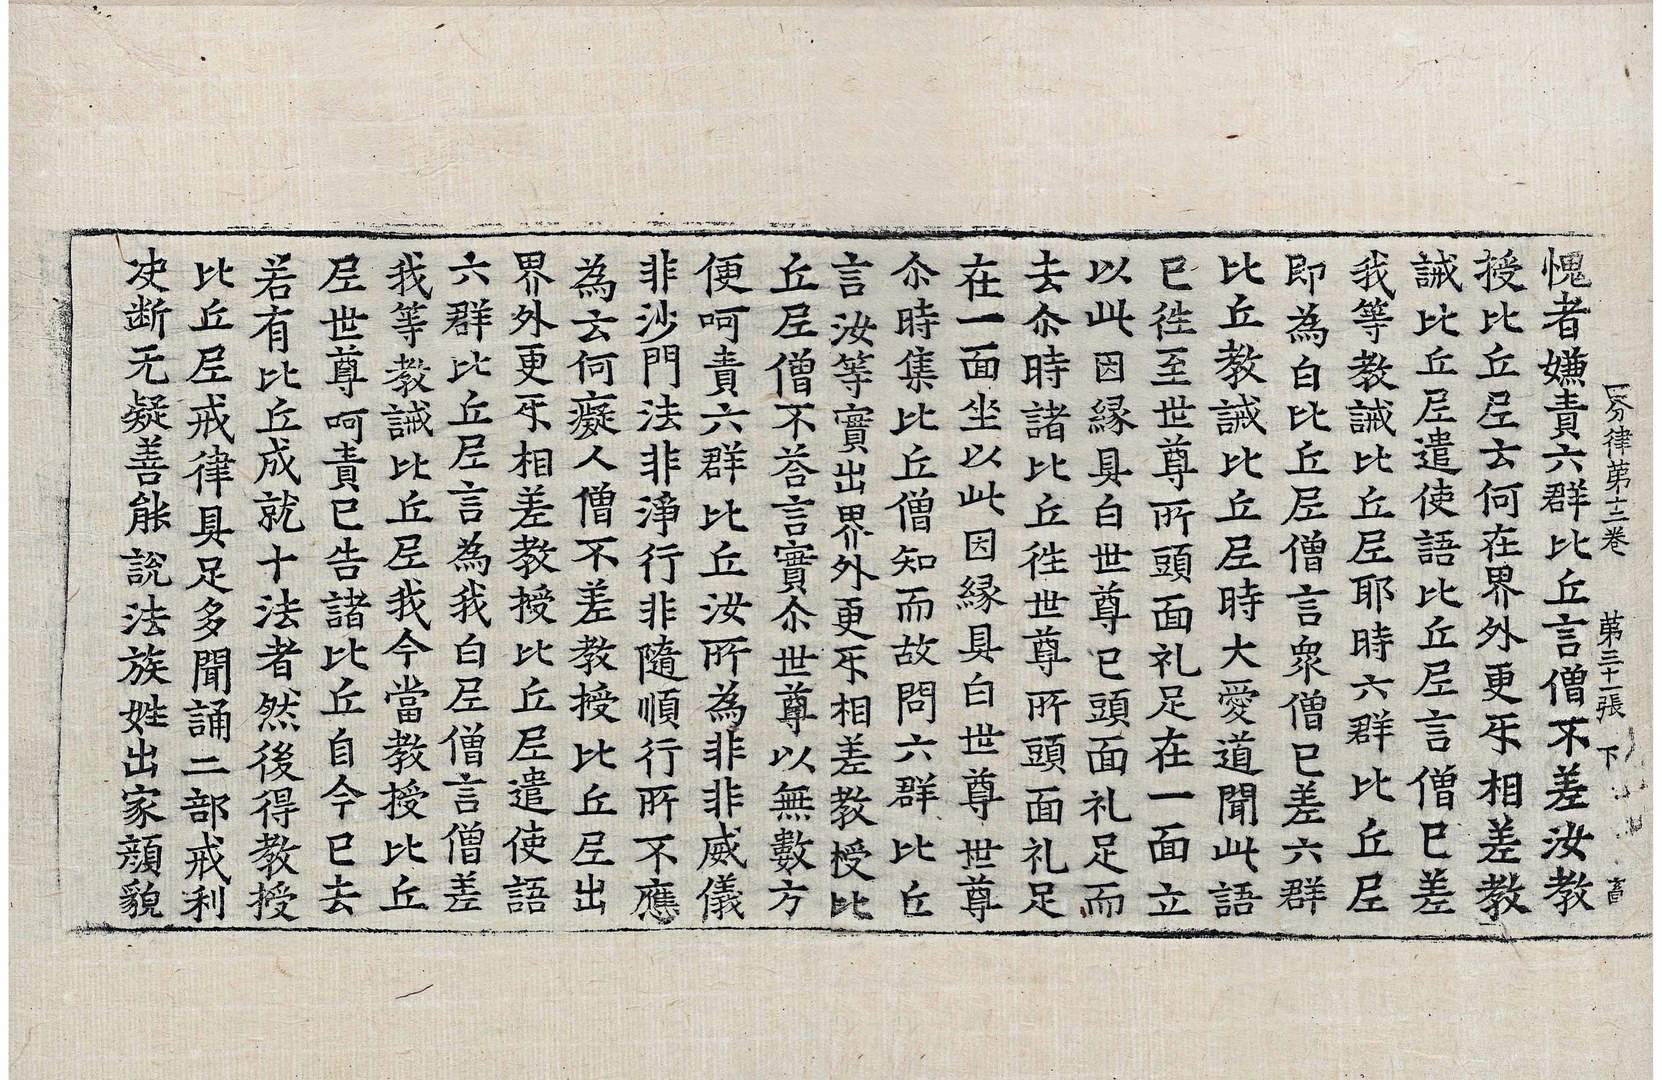 四分律第十二卷 第三十一張 下
愧者嫌責六群比丘言僧不差汝教
授比丘尼云何在界外更牙相差教
誡比丘尼遣使語比丘尼言僧已差
我等教誡比丘尼耶時六群比丘尼
即為白比丘尼僧言眾僧已差六群
比丘教誡比丘尼時大愛道聞此語
已徃至世尊所頭面礼足在一面立
以此因縁具白世尊已頭面礼足而
去尒時諸比丘徃世尊所頭面礼足
在一面坐以此因縁具白世尊世尊
尒時集比丘僧知而故問六群比丘
言汝等實出界外更牙相差教授比
丘尼僧不荅言實尒世尊以無數方
便呵責六群比丘汝所為非非威儀
非沙門法非淨行非隨順行所不應
為云何癡人僧不差教授比丘尼出
界外更牙相差教授比丘尼遣使語
六群比丘尼言為我白尼僧言僧差
我等教誡比丘尼我今當教授比丘
尼世尊呵責已告諸比丘自今已去
若有比丘成就十法者然後得教授
比丘尼戒律具足多聞誦二部戒利
决断无疑善能說法族姓出家顔貌